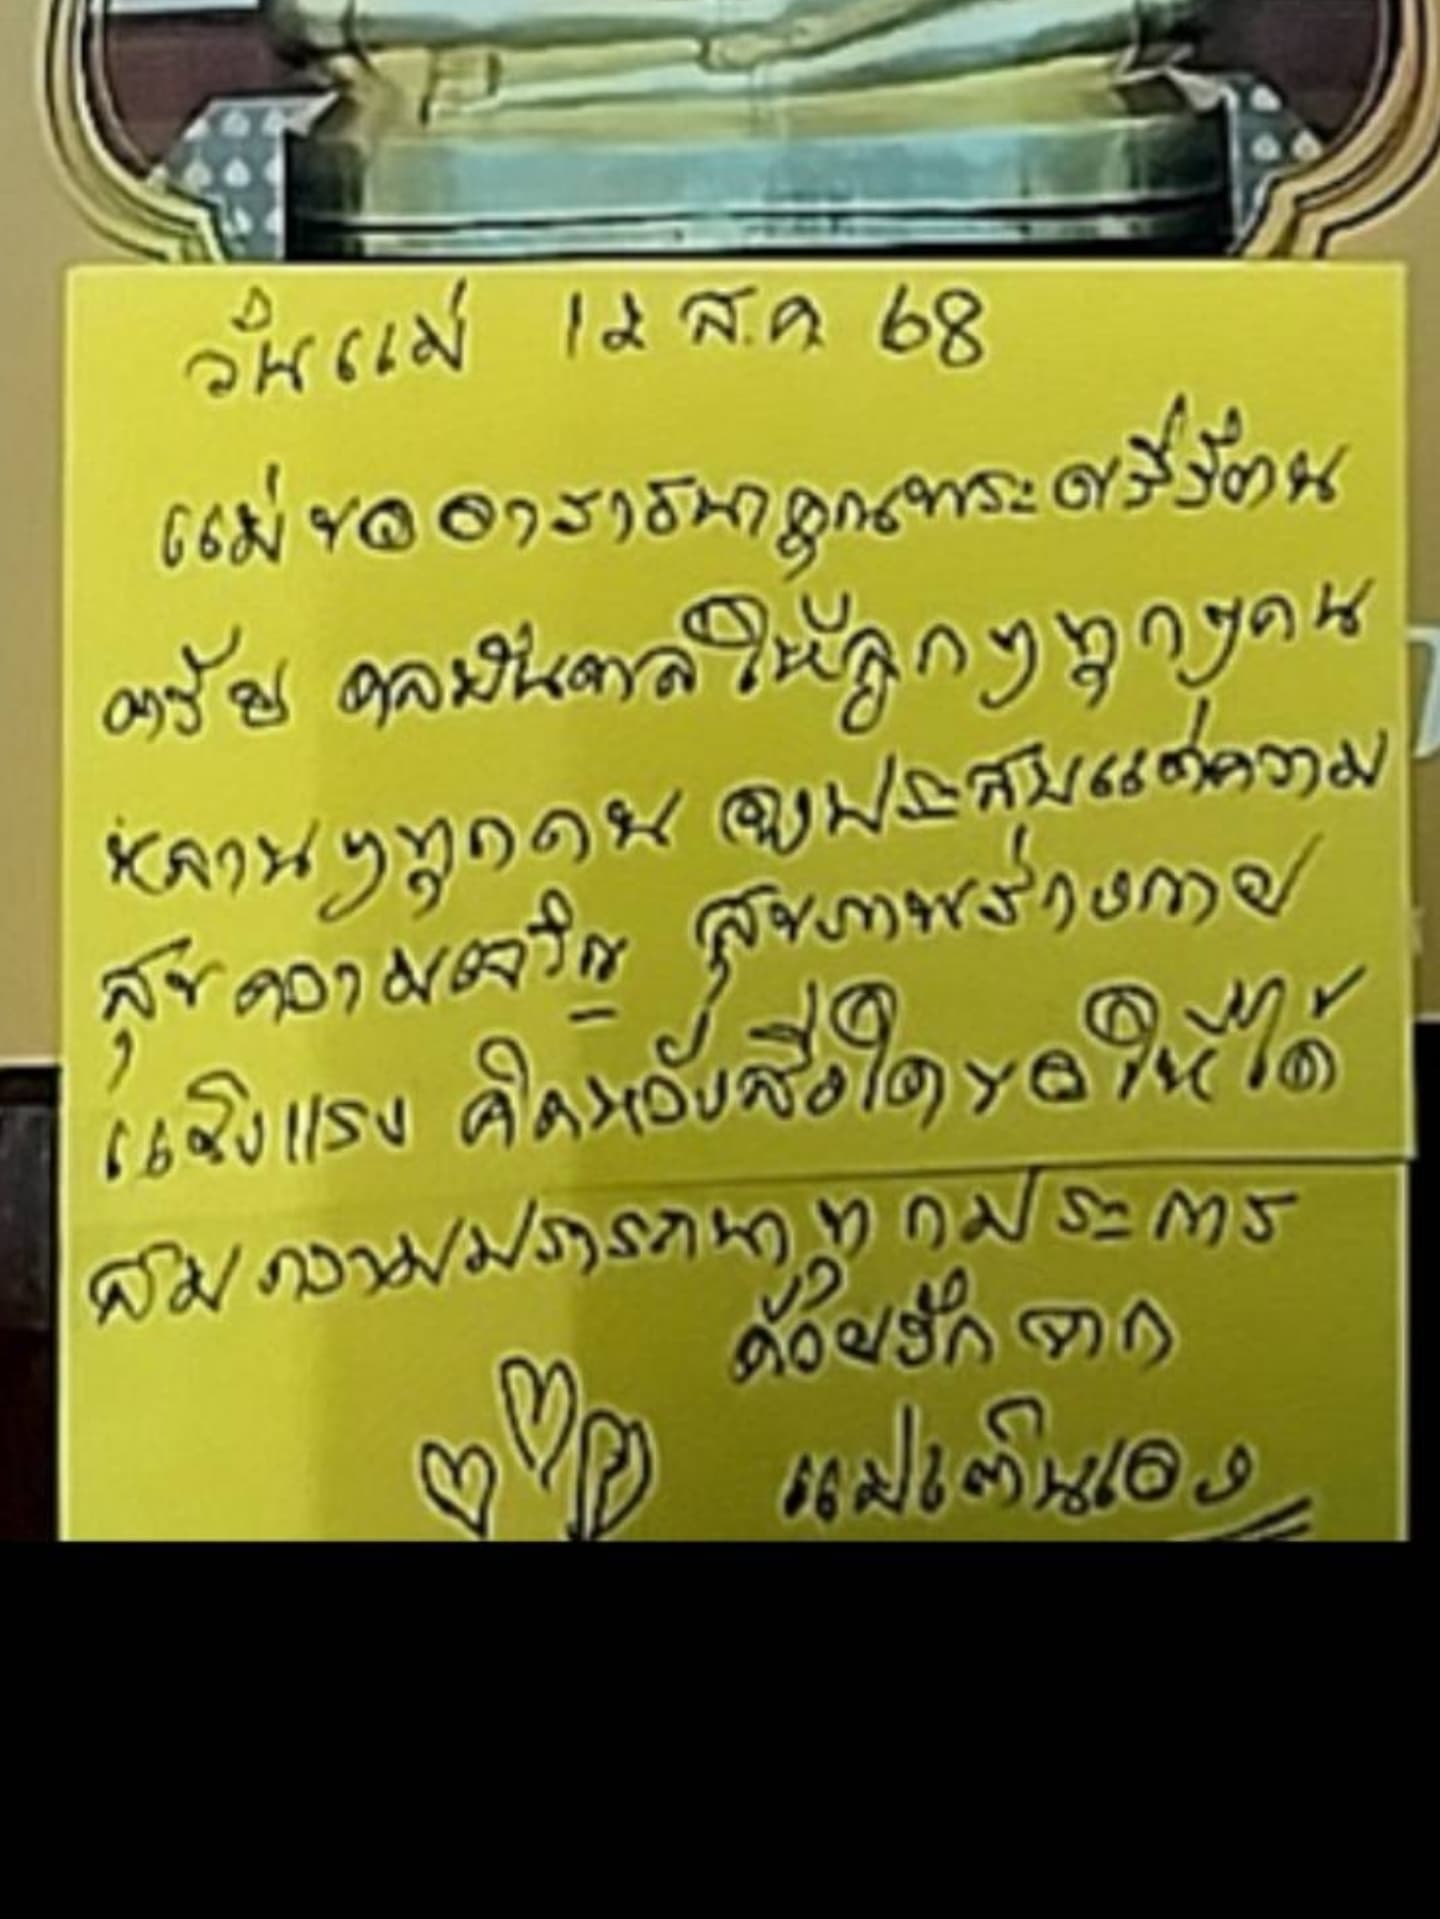 วันแม่ 12 ส.ค 68
แม่ขออาราธนาคุณพระศรีรัตน
ตรัย ดลบันดาลให้ลูกๆทุกๆคน
หลานๆทุกคน จงประสบแต่ความ
สุขความเจริญ สุขภาพร่างกาย
แข็งแรง คิดหวังสิ่งใดขอให้ได้
สมความปรารถนาทุกประการ
ด้วยรัก จาก
แม่เตินเอง